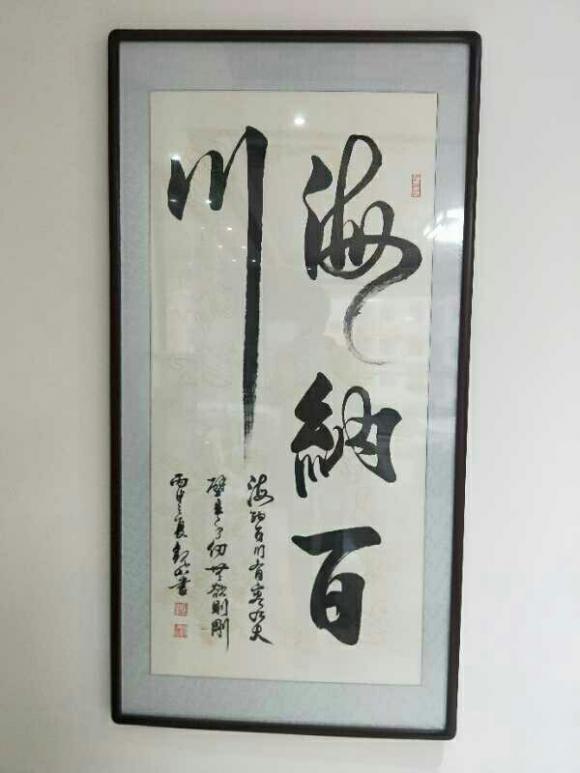 海納百
川
海納百川有容乃大
壁立千仞無欲則剛
丙申夏書